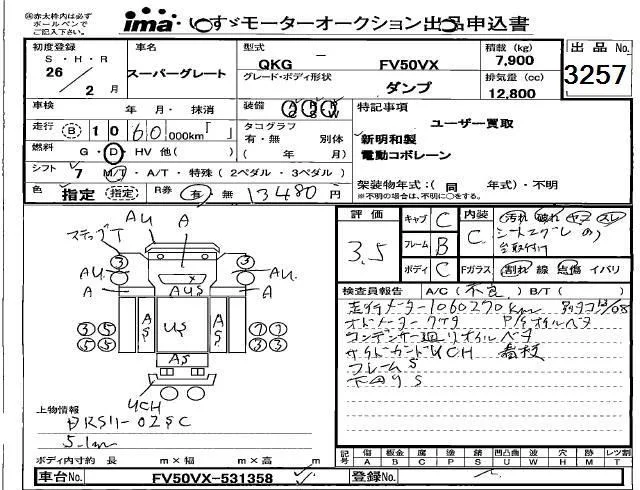 ㊟赤太枠内は必ず
ボールペンで
ご記入下さい。
ima いすゞモーターオークション出品申込書
初度登録
S・H・R
26 2 月
車名
スーパーグレート
型式
QKG － FV50VX
グレード・ボディ形状
ダンプ
積載 (kg)
7,900
排気量 (cc)
12,800
出 品 No.
3257
車検 年 月・ 抹消
走行 (B) 1 0 6 0 000km「 」
燃料 G・D・HV 他( )
シフト 7 M/T・A/T・特殊 ( 2ペダル・3ペダル )
色 指定 (指定) R券 有・無 13480 円
装備 A/C P/S P/W
タコグラフ
有・無 別体
( 年 月 )
特記事項
ユーザー買取
新明和製
電動コボレーン
架装物年式：( 同 年式)・不明
※不明の場合は、不明に○をする。
評価
3.5
キャブ C
フレーム B
ボディ C
内装 C
汚れ 破れ ヤニ スレ
シートエグレ
台取付け
Fガラス 割れ 線 点傷 イバリ
検査員報告 A/C( 不良 ) B/T( )
走行メーター1060270km
コンデンサー廻りオイルベタ
サイドガードUCH
フレームS
下回りS
ステップT AU A
AU. AU.
A AUS A
3 3
AS US AS
3 3 7 7
5 5 5 5
AS
UCH
上物情報
DRS11-02SC
5.1m
ボディ内寸約 長 m×幅 m×高 m
記号 傷 板金 腐 塗 錆 凹凸曲 波 穴 跡 レツ割
A B C P S U W H M T
車台No. FV50VX-531358
登録No.